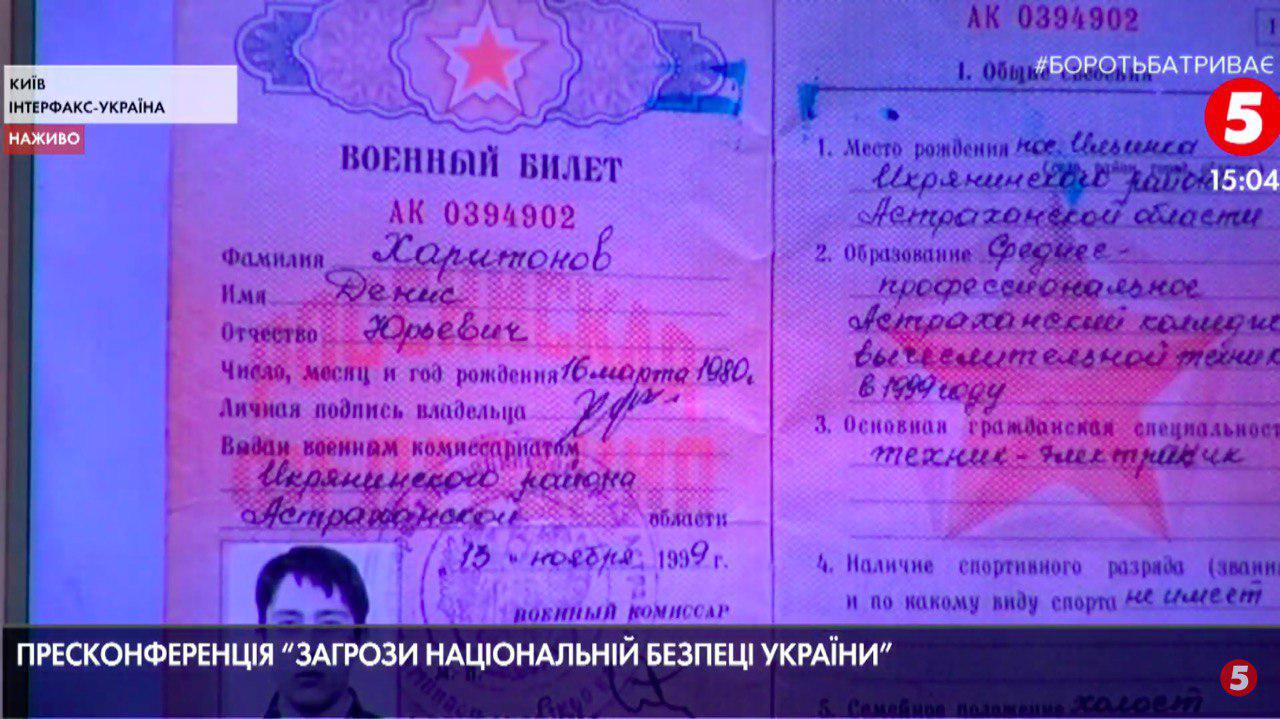 КИЇВ
ІНТЕРФАКС-УКРАЇНА
НАЖИВО
#БОРОТЬБАТРИВАЄ
5
15:04
ВОЕННЫЙ БИЛЕТ
АК 0394902
Фамилия Харитонов
Имя Денис
Отчество Юрьевич
Число, месяц и год рождения 16 марта 1980г.
Личная подпись владельца
Выдан военным комиссариатом
Икрянинского района
Астраханской области
"15" ноября 1999 г.
ВОЕННЫЙ КОМИССАР
АК 0394902
1
I. Общие сведения
1. Место рождения пос. Ильинка
Икрянинского район
Астраханской области
2. Образование Среднее-
профессиональное
Астраханский колледж
вычеслительной техник
в 1999 году
3. Основная гражданская специальност
техник-электрик
4. Наличие спортивного разряда (звани
и по какому виду спорта не имеет
5. Семейное положение холост
ПРЕСКОНФЕРЕНЦІЯ “ЗАГРОЗИ НАЦІОНАЛЬНІЙ БЕЗПЕЦІ УКРАЇНИ”
5